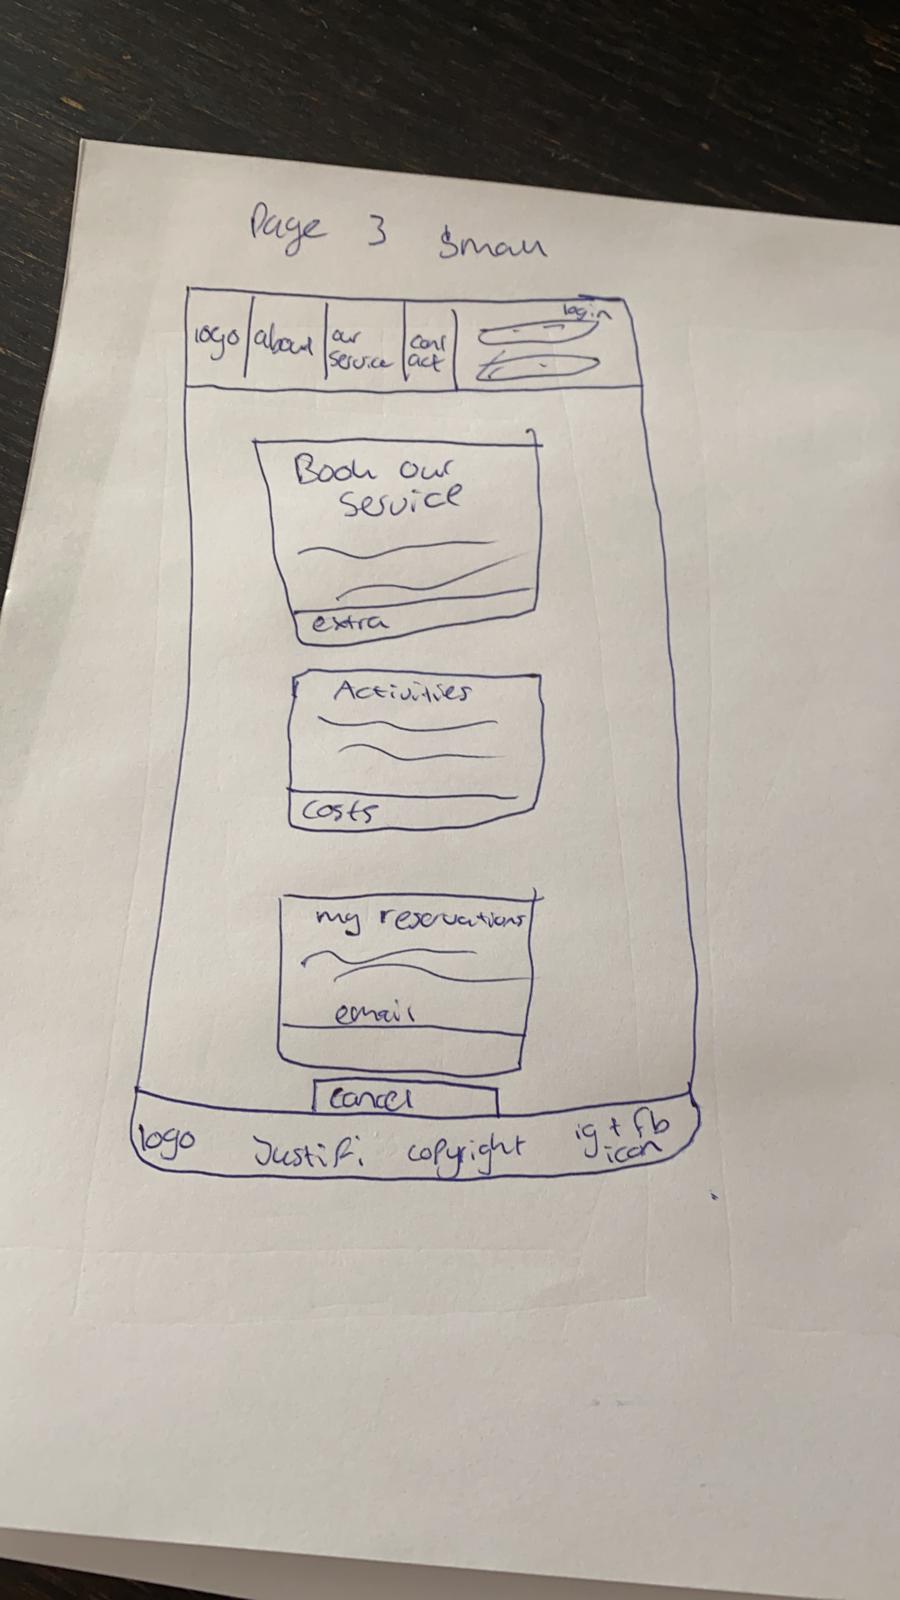 Page 3 Small
login
logo about our service cont act
Book our
service
extra
Activities
costs
my reservations
email
cancel
logo Justifi copyright ig + fb
icon